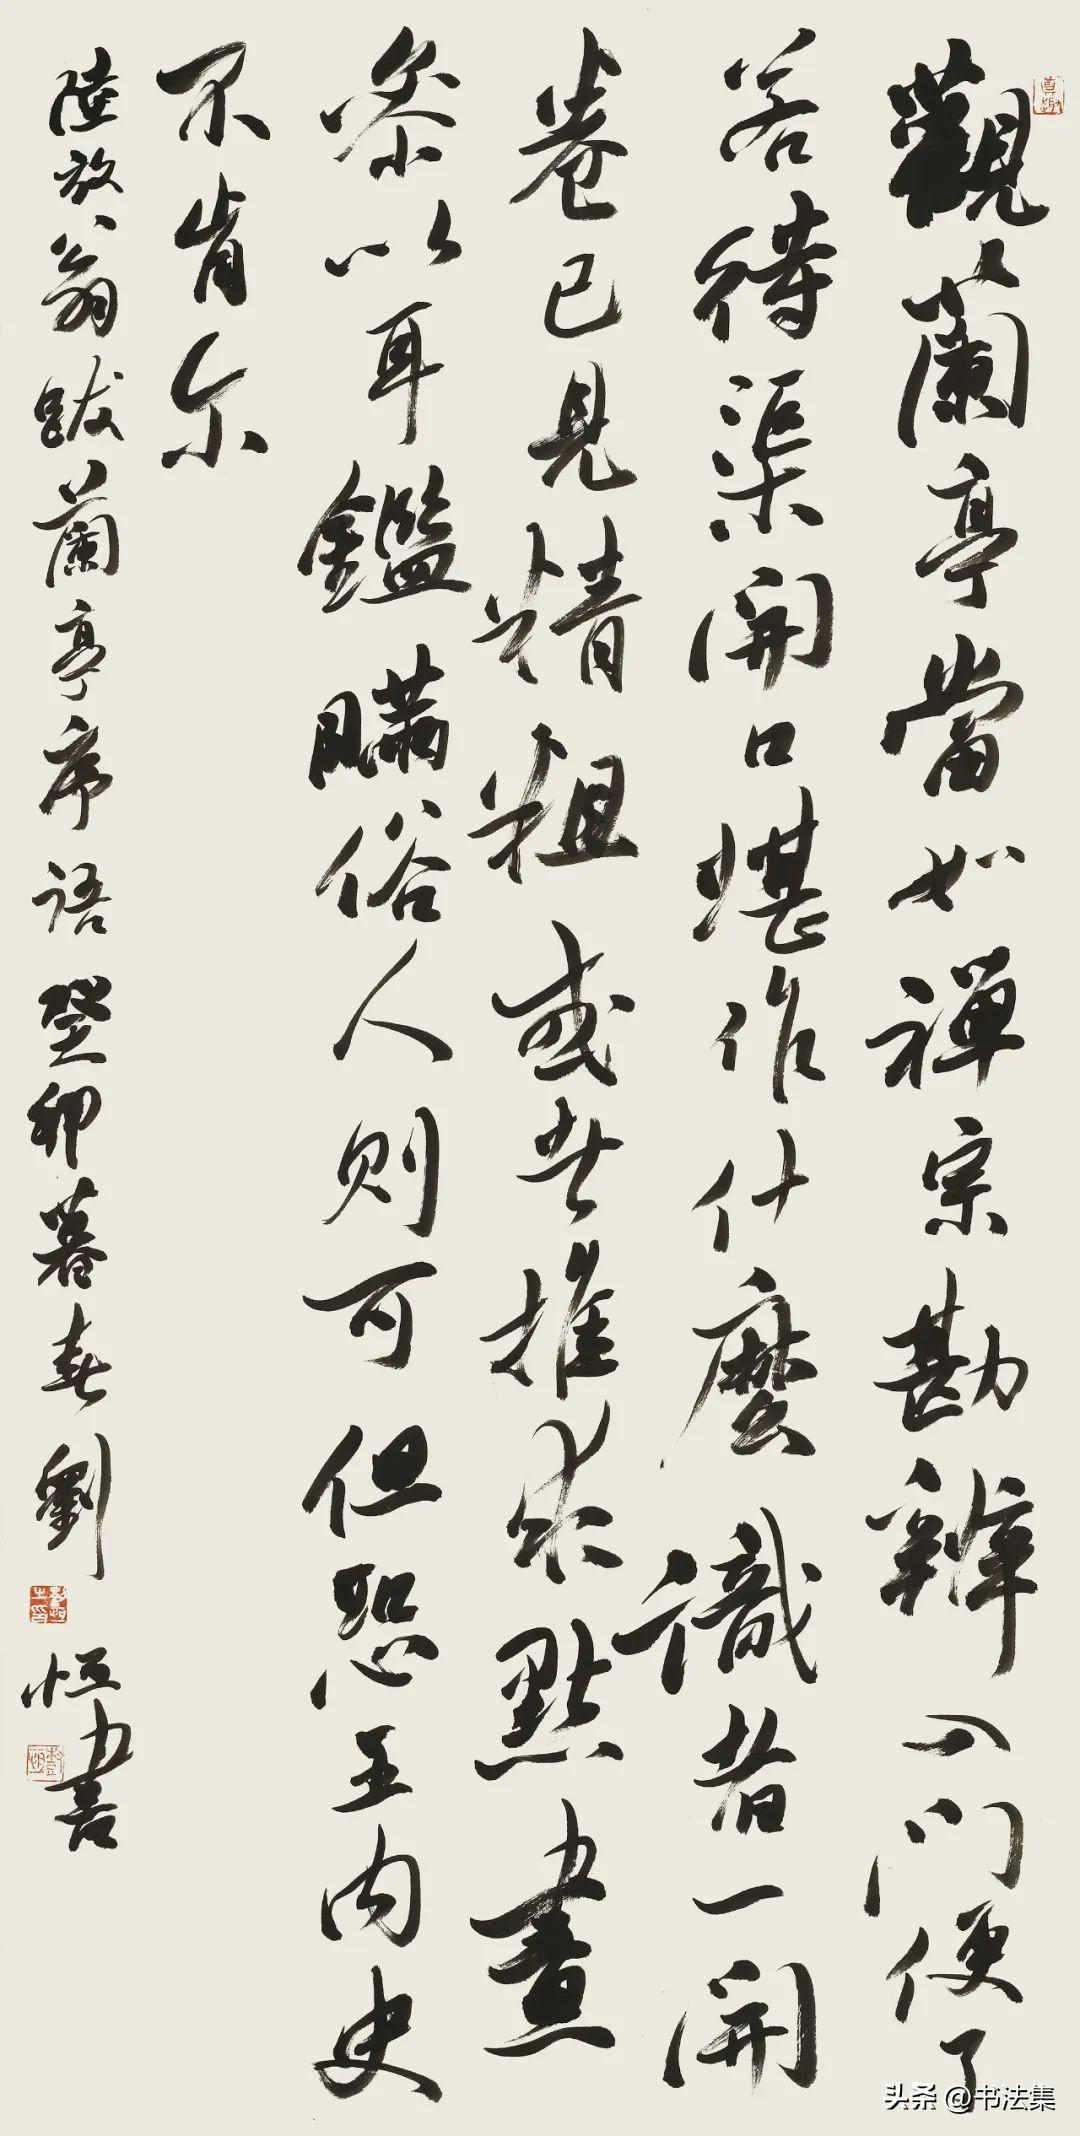 觀蘭亭當如禪宗勘辨入門便了
若待渠開口堪作什麼識者一開
卷已見精粗或者推求點畫
參以耳鑑瞞俗人則可但恐王內史
不肯尔
陸放翁跋蘭亭序語癸卯暮春劉
恒書
真趣
头条 @书法集